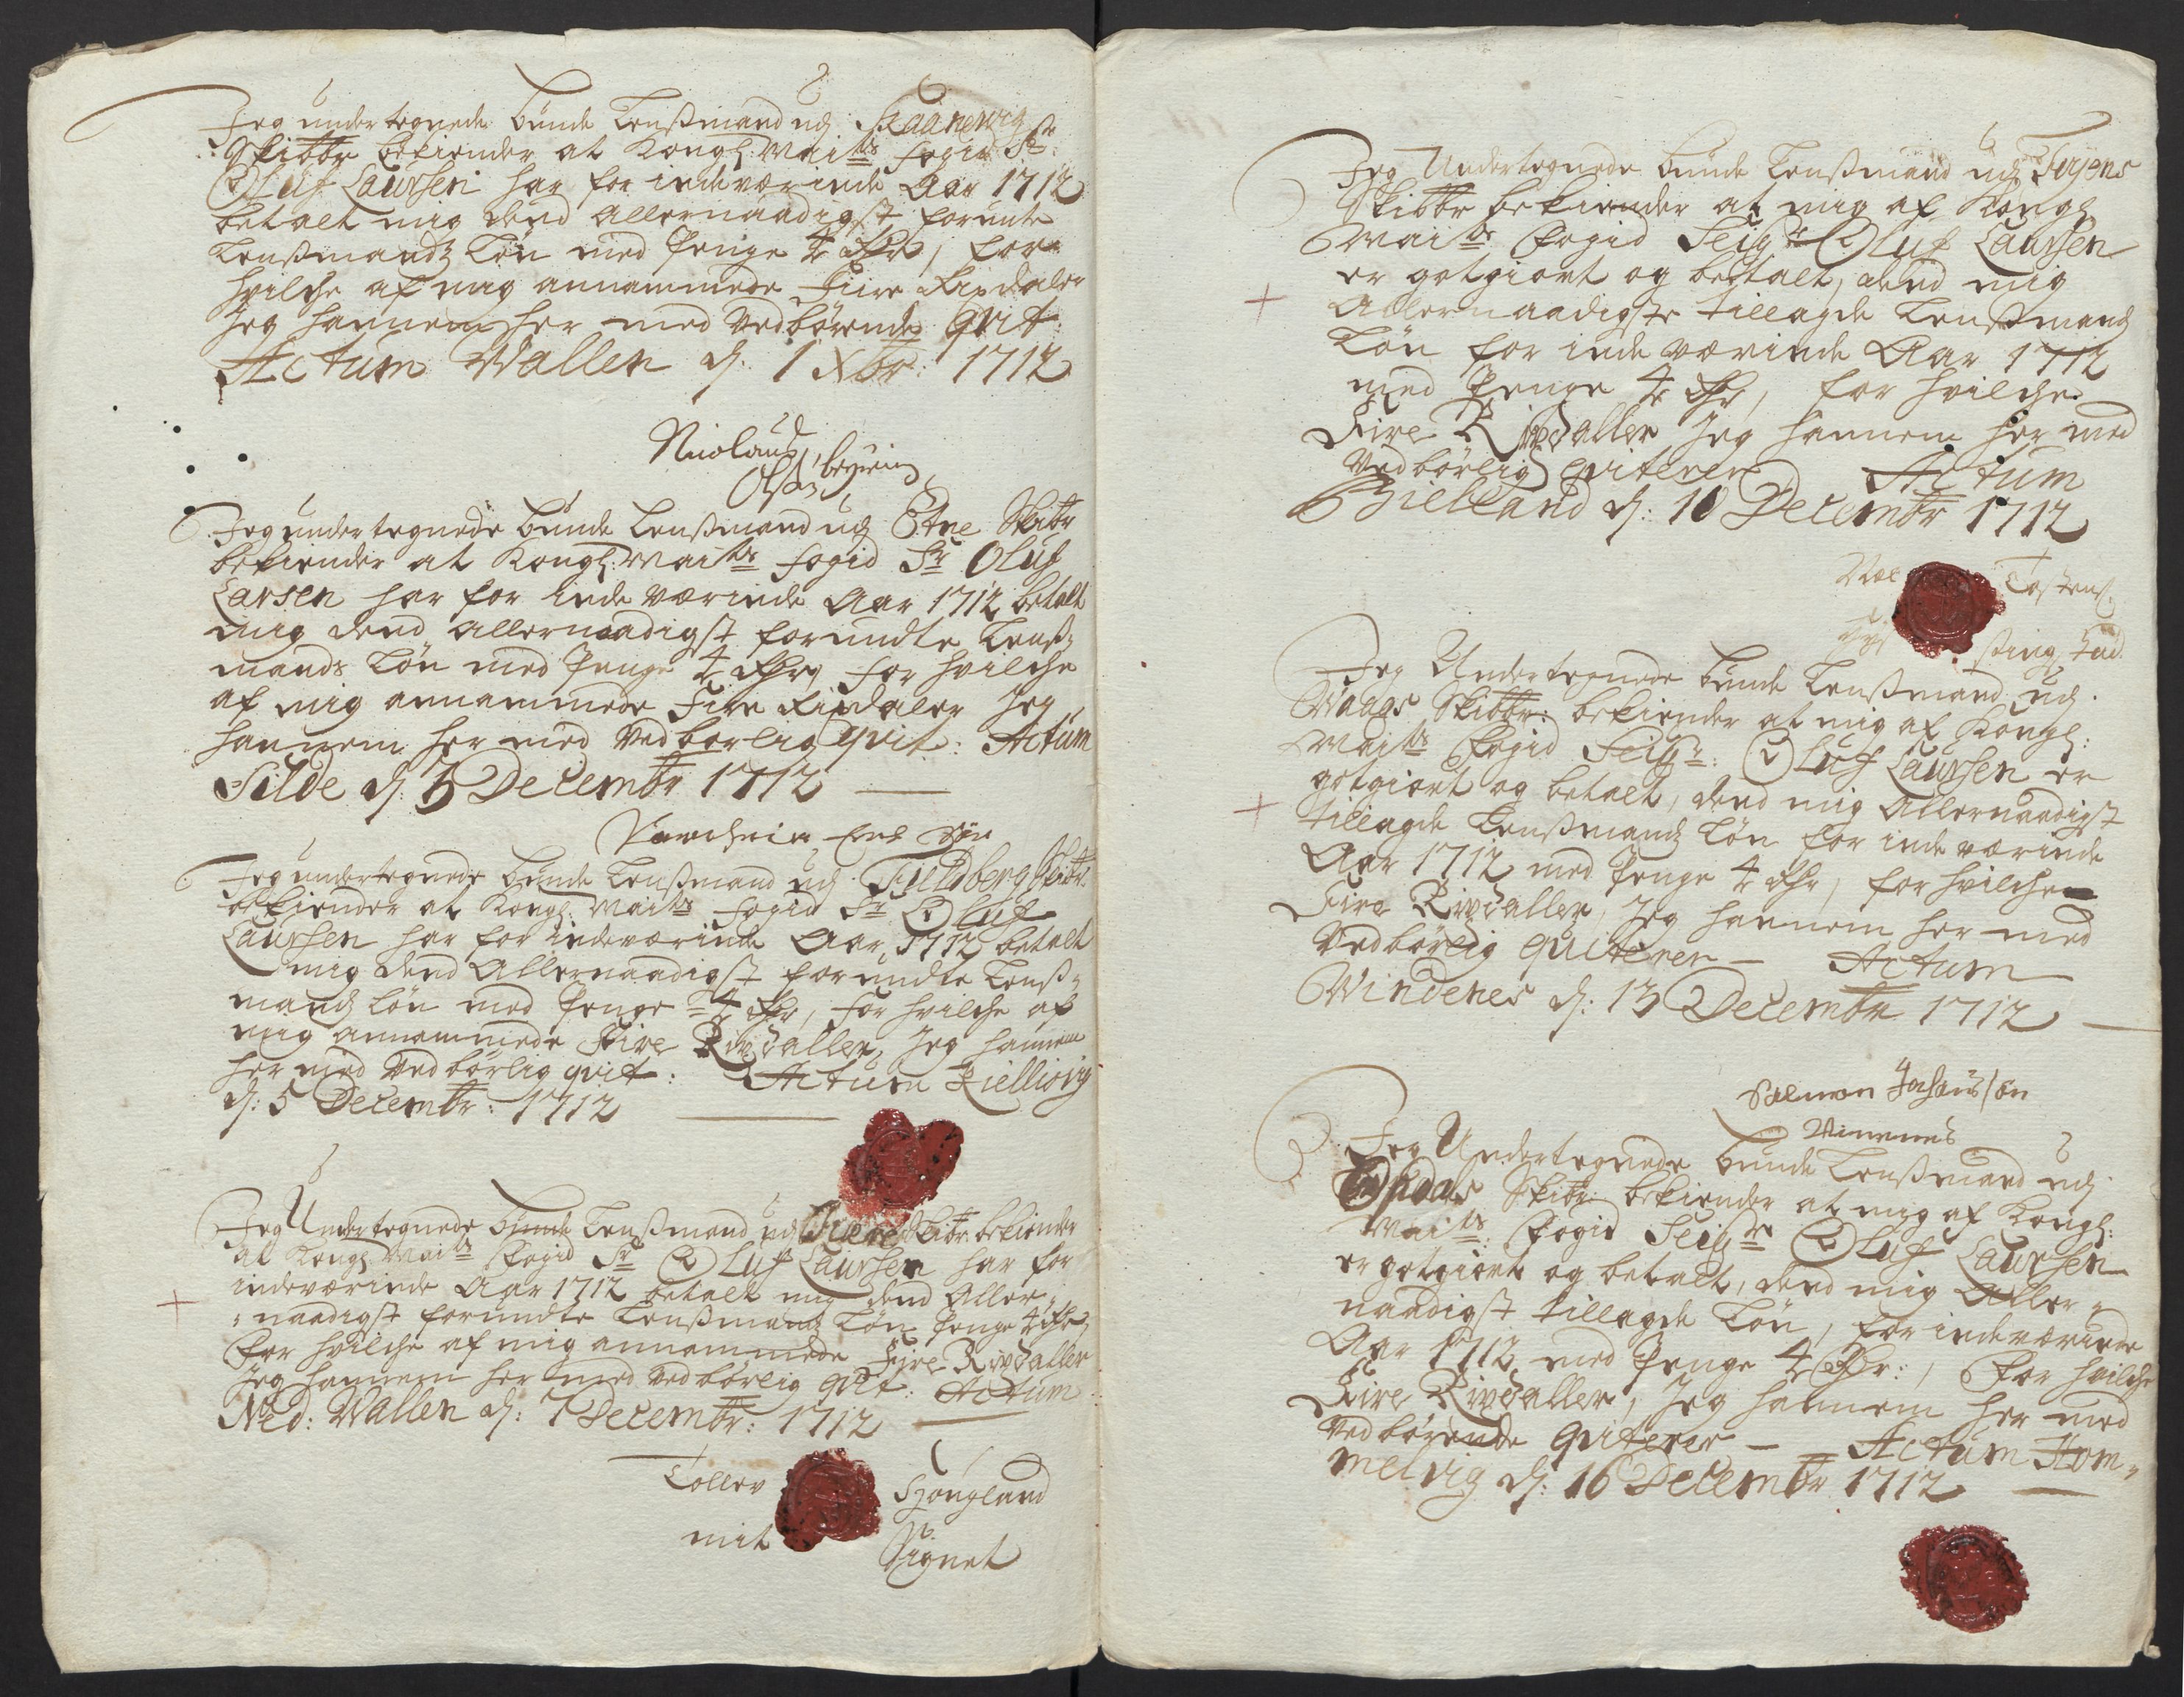 Jeg undertegnede bunde Lenßmand udj Skaanewig
Skibbr bekiender at Kongl: Maits fogid Sr
Oluf Laursen har for indeværinde Aar 1712
betalt mig dend allernaadigst forunte
Lenßmandz Løn med Penge 4 Rdr, for
hvilche af mig annammede Fiire Rixdaler
Jeg hannem her med vedbørende qvit:
Actum Wallen dj: 1 Xbr: 1712
Nicolaus
Olsøn
Jeg undertegnede bunde Lenßmand udj Etne Skibr
bekiender at Kongl: Maits fogid Sr Oluf
Larsen har for inde værinde Aar 1712 betalt
mig dend allernaadigst forundte Lenß-
mands Løn med Penge 4 Rdr, for hvilche
af mig annammede Fire Rixdaler Jeg
hannem her med vedborlig qvit: Actum
Silde dj: 3 Decembr 1712
Jeg undertegnede bunde Lenßmand udj Fieldberg Skibr:
bekiender at Kongl: Maits fogid Sr Oluf
Laursen har for indeværinde Aar 1712 betalt
mig dend Allernaadigst forundte Lenß-
mandz Løn med Penge 4 Rdr, for hvilche af
mig annammede Fire Rixdaller, Jeg hannem
her med vedbørlig qvit: Actum Kielliswig
dj: 5 Decembr: 1712
Jeg Undertegnede bunde Lenßmand udj Fiære Skibr: bekiender
at Kongl: Maits Fogid Sr Oluf Laursen har for
indeværinde Aar 1712 betalt mig dend Aller-
naadigst forundte Lenßmandz Løn Penge 4 Rdr,
for hvilche af mig annammede Fire Rixdaller
Jeg hannem her med vedbørlig qvit: Actum
Ned: Wallen dj: 7 Decembr: 1712
Tollev Hougland
mit Signet
Jeg Undertegnede bunde Lenßmand udj Føyens
Skibbr bekiender at mig af Kongl
Maits Fogid Seigr Oluf Laursen
er gotgiort og bettalt, dend mig
Allernaadigste tillagde Lenßmandz
Løn for inde værinde Aar 1712
med Penge 4 Rdr, for hvilche
Fire Rixdaller Jeg hannem her med
vedbørlig qviterer Actum
Gielland dj: 10 Decembr 1712
Tostens.
Jeg Undertegnede bunde Lenßmand udj
Waags Skibbr: bekiender at mig af Kongl:
Maits Fogid Seigr: Oluf Laursen er
gotgiort og betalt, dend mig Allernaadigst
tillagde Lenßmandz Løn for inde værinde
Aar 1712 med Penge 4 Rdr, for hvilche
Fire Rixdaller, Jeg hannem her med
vedbørlig quiterer – Actum
Windenes dj: 13 Decembr 1712
Salmon Johansøn
Vinnenes
Jeg Undertegnede bunde Lenßmand udj
Opdals Skibr: bekiender at mig af Kongl:
Maits: Fogid Seigr Oluf Laursen
er gotgiort og betalt, dend mig Aller-
naadigst tillagde Løn, for indeværinde
Aar 1712 med Penge 4 Rdr:, for hvilche
Fire Rixdaller, Jeg hannem her med
vedbørende qviterer – Actum Hom-
melvig dj: 16 Decembr 1712